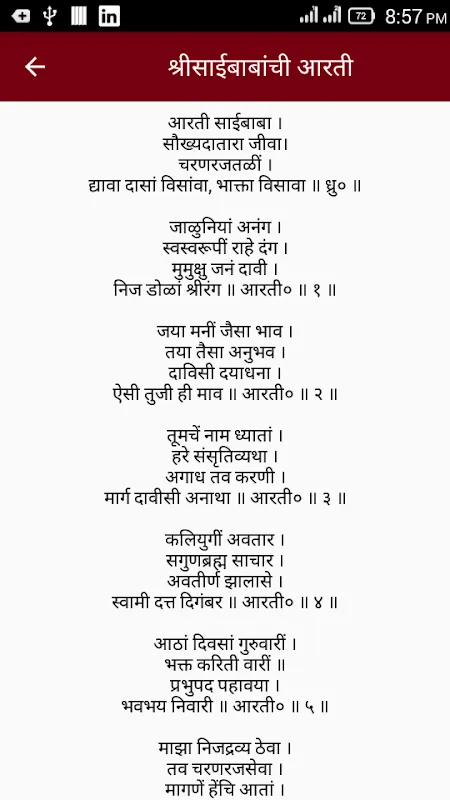 72 8:57 PM
श्रीसाईबाबांची आरती
आरती साईबाबा ।
सौख्यदातारा जीवा।
चरणरजतळीं ।
द्यावा दासां विसांवा, भाक्ता विसावा ॥ ध्रु० ॥
जाळुनियां अनंग ।
स्वस्वरूपीं राहे दंग ।
मुमुक्षु जनं दावी ।
निज डोळां श्रीरंग ॥ आरती० ॥ १ ॥
जया मनीं जैसा भाव ।
तया तैसा अनुभव ।
दाविसी दयाधना ।
ऐसी तुजी ही माव ॥ आरती० ॥ २ ॥
तूमचें नाम ध्यातां ।
हरे संसृतिव्यथा ।
अगाध तव करणी ।
मार्ग दावीसी अनाथा ॥ आरती० ॥ ३ ॥
कलियुगीं अवतार ।
सगुणब्रह्म साचार ।
अवतीर्ण झालासे ।
स्वामी दत्त दिगंबर ॥ आरती० ॥ ४ ॥
आठां दिवसां गुरुवारीं ।
भक्त करिती वारीं ॥
प्रभुपद पहावया ।
भवभय निवारी ॥ आरती० ॥ ५ ॥
माझा निजद्रव्य ठेवा ।
तव चरणरजसेवा ।
मागणें हेंचि आतां ।